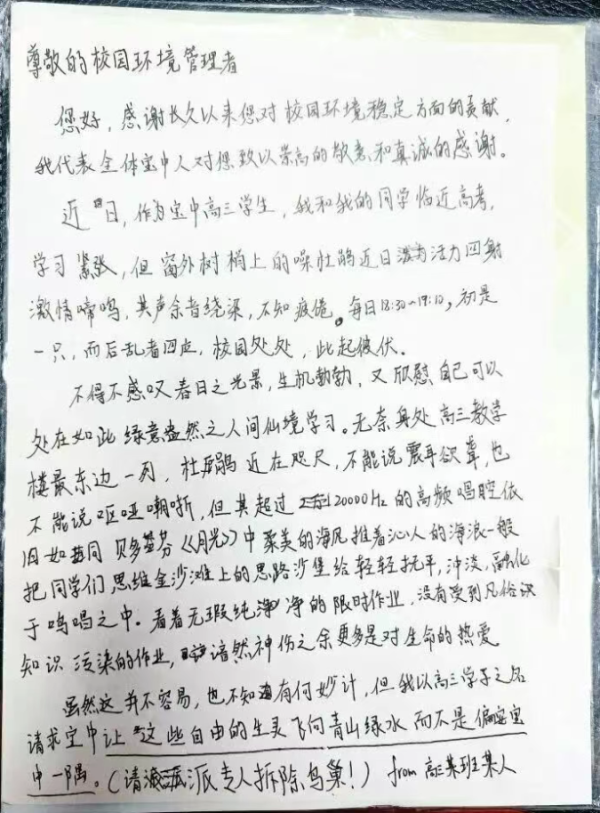 尊敬的校园环境管理者
您好，感谢长久以来您对校园环境稳定方面的贡献，
我代表全体宝中人对您致以崇高的敬意和真诚的感谢。
近日，作为宝中高三学生，我和我的同学临近高考，
学习紧张，但窗外树梢上的噪杜鹃近日活力四射
激情啼鸣，其声余音绕梁，不知疲倦。每日18:30~19:10，初是
一只，而后乱者四应，校园处处，此起彼伏。
不得不感叹春日之光景，生机勃勃，又欣慰自己可以
处在如此绿意盎然之人间仙境学习。无奈身处高三教学
楼最东边一列，杜鹃近在咫尺，不能说震耳欲聋，也
不能说呕哑嘲哳，但其超过20000Hz的高频唱腔依
旧如同贝多芬《月光》中柔美的海风推着沁人的海浪一般
把同学们思维金沙滩上的思路沙堡给轻轻抚平，冲淡，融化
于鸣唱之中。看着无瑕纯净的限时作业，没有受到凡俗识
知识污染的作业，黯然神伤之余更多是对生命的热爱
虽然这并不容易，也不知有何妙计，但我以高三学子之名
请求宝中让“这些自由的生灵飞向青山绿水而不是偏安宝
中一隅。（请派专人拆除鸟巢！） from 高三某班某人